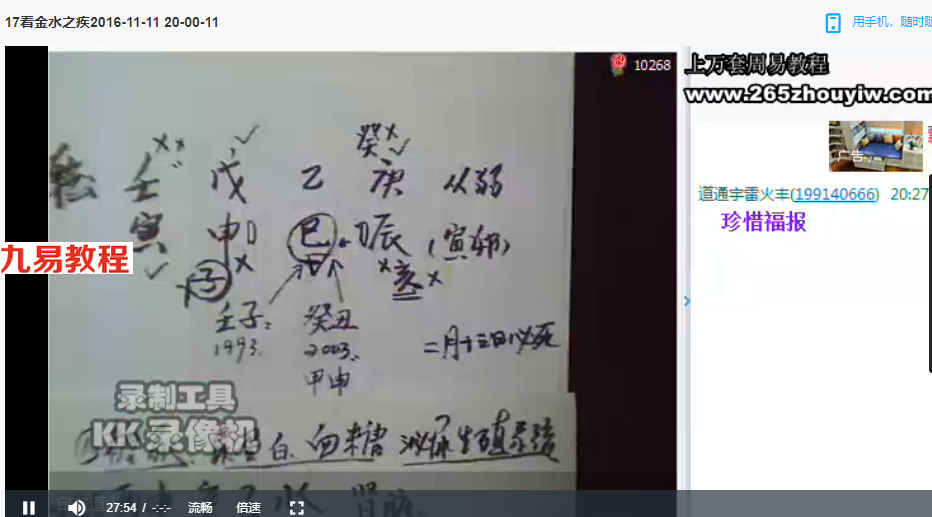 17看金水之疾2016-11-11 20-00-11
用手机，随时随
10268
上万套周易教程
www.265zhouyiw.com
广告
道通宇雷火丰(199140666) 20:27
珍惜福报
九易教程
癸
壬 戊 乙 庚 从弱
寅 申 巳 辰 (寅卯)
子 亥
壬子: 癸丑
1993. 2003.
甲申
二月十三日必死
录制工具
KK 录像机
白 血糖 泌尿生殖系统
水 肾
27:54 / -:-:- 流畅 倍速